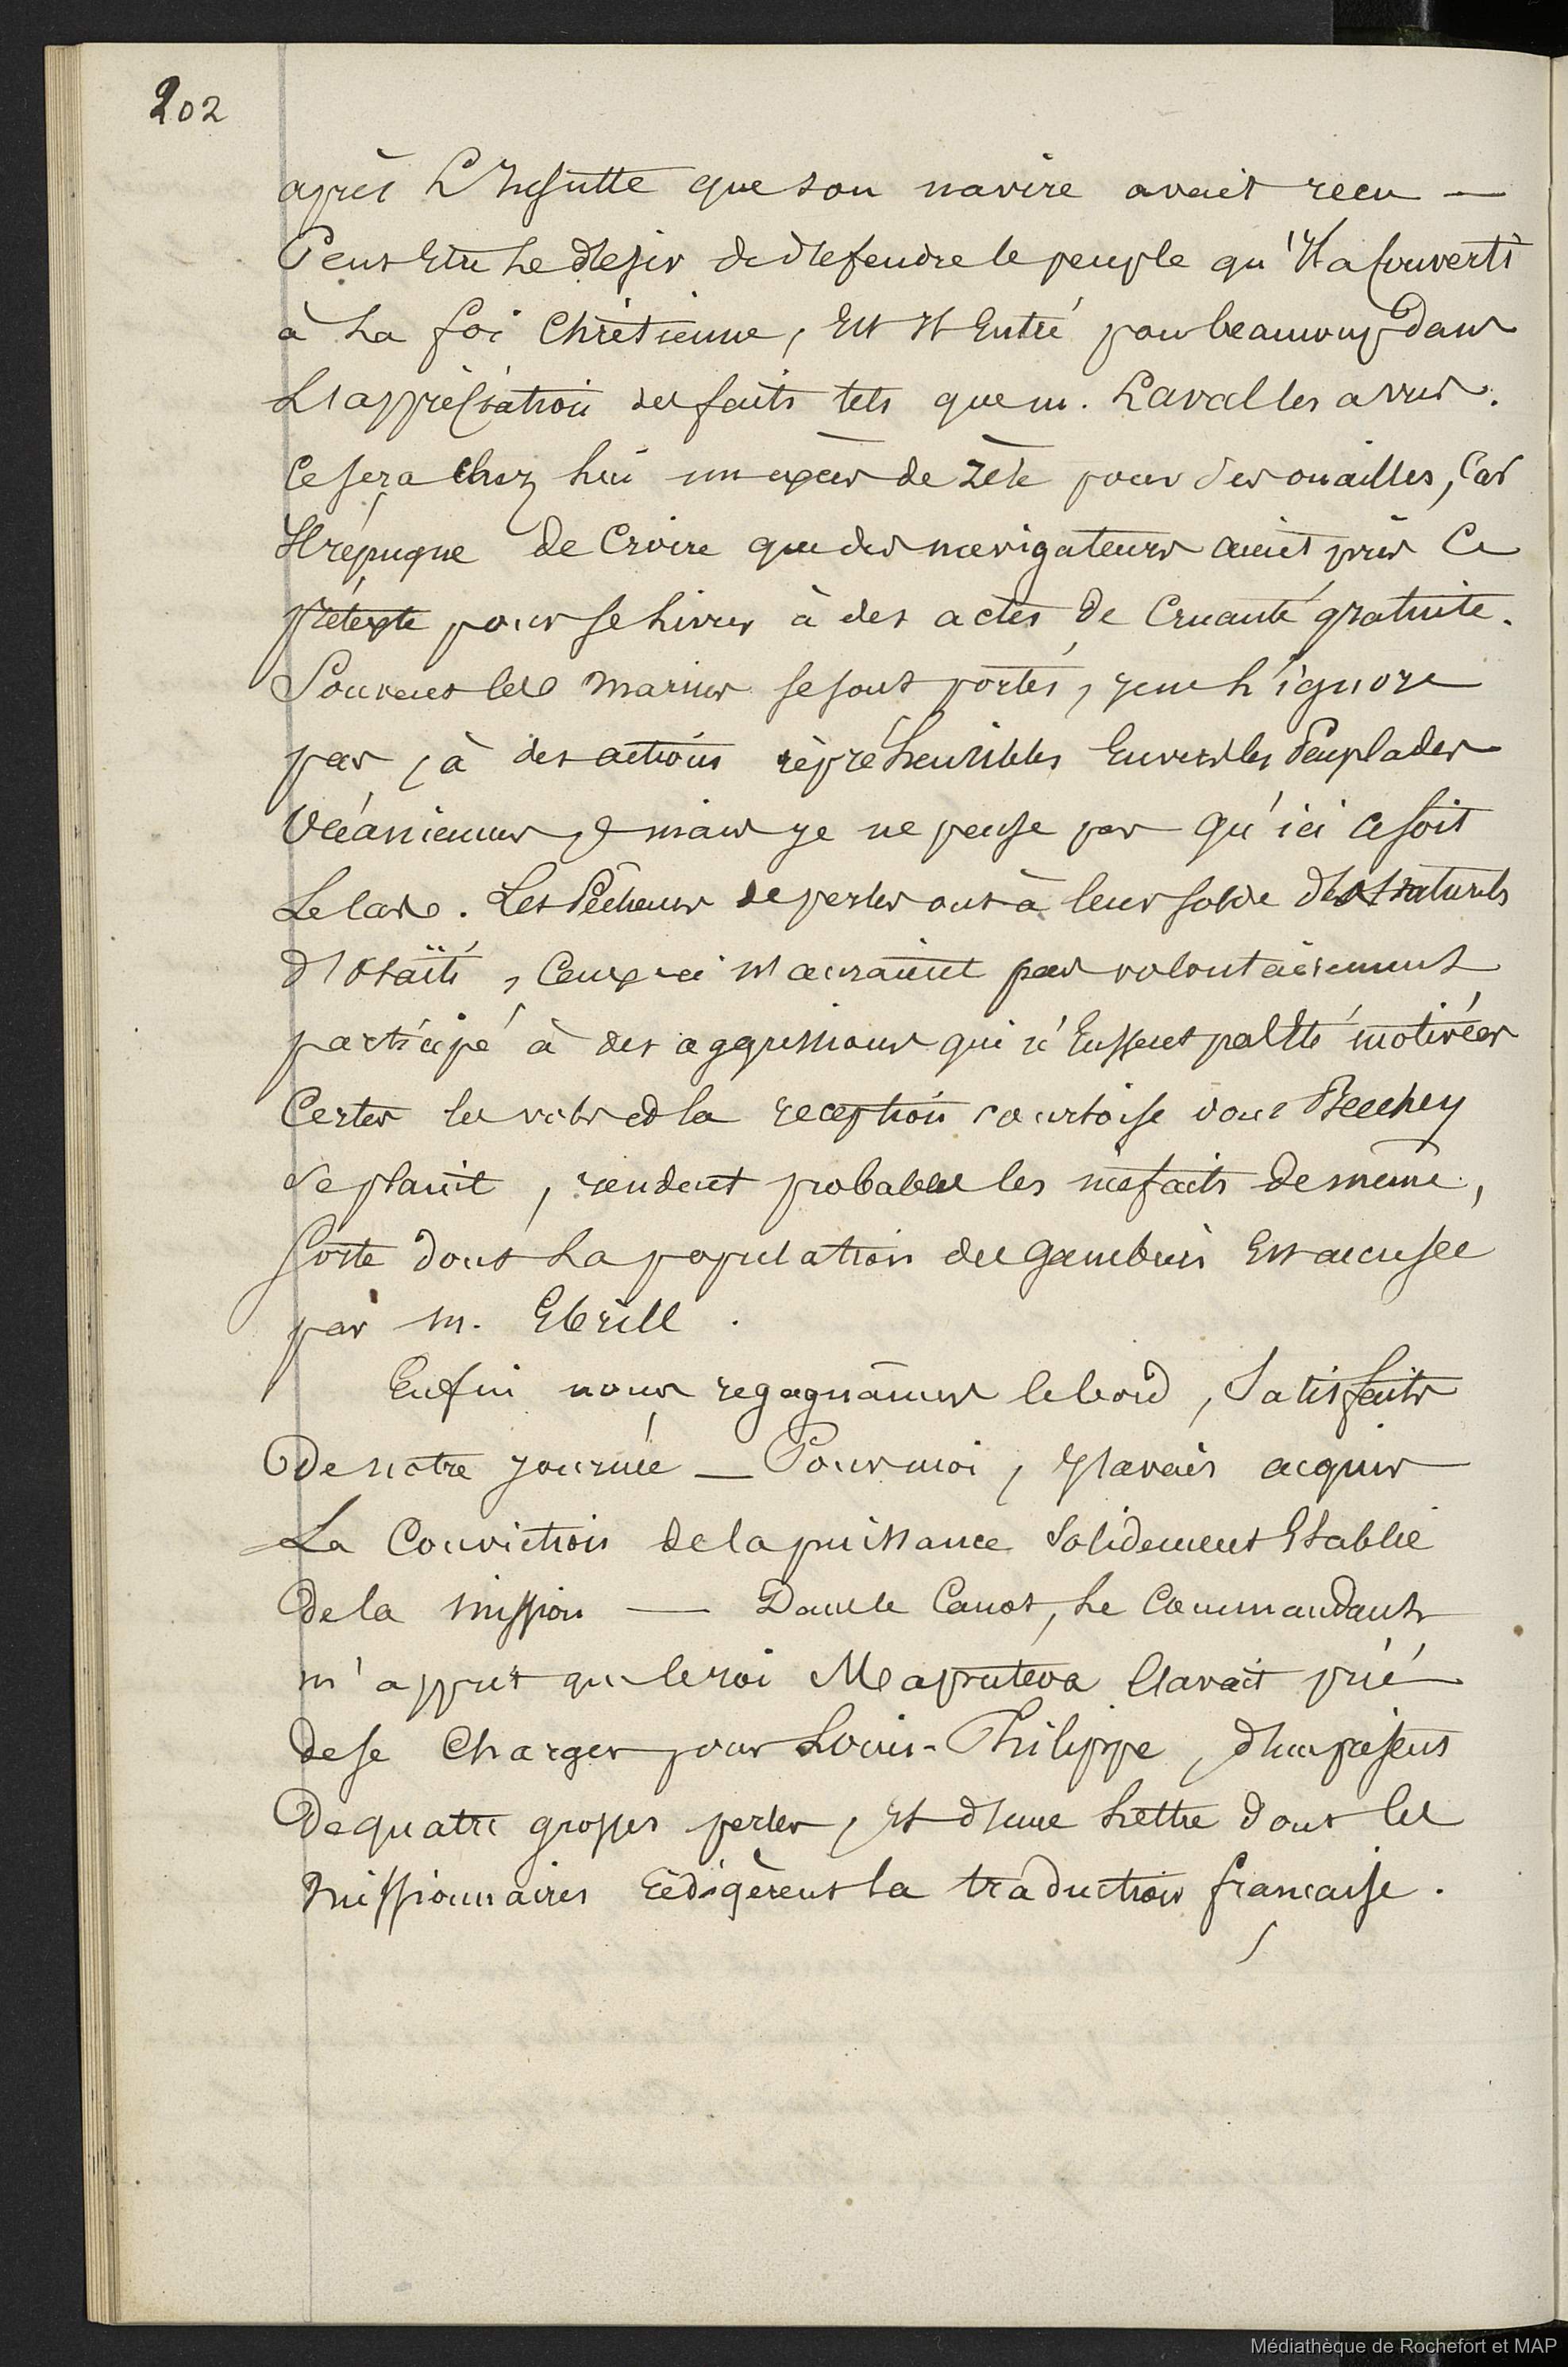 202
après L'Insulte que son navire avait recu —
Peut Etre Le desir de defendre le peuple qu'Il a Converti
à La foi Chrétienne, Est Il Entré pour beaucoup Dans
L'appréciation des faits tels que m. Laval les a vus.
Ce sera Chez lui un excès de zèle pour ses ouailles, Car
Il répugne de Croire que des navigateurs aient pris Ce
prétexte pour se livrer à des actes de Cruauté gratuite.
Souvent les marins se sont portés, je ne L'ignore
pas, à des actions répréhensibles Envers les Peuplades
Océaniennes, mais je ne pense pas qu'ici ce soit
Le Cas. Les Pêcheurs de perles ont à leur solde des naturels
d'Otaïti, Ceux-ci n'auraient pas volontairement
participé à des aggressions qui n'Eussent pas Eté motivées
Certes les vols et la reception courtoise dont Beechey
se plaint, rendent probables les méfaits de même,
sorte dont La population des Gambier Est accusée
par m. Ebrill.
Enfin nous regagnâmes le bord, Satisfaits
De notre journée — Pour moi, J'avais acquis
La Conviction de la puissance Solidement Etablie
De la mission — Dans le Canot, Le Commandant
m'apprit que le roi Maputeoa L'avait prié
De se Charger pour Louis-Philippe, d'un présent
De quatre grosses perles, Et d'une Lettre dont les
missionnaires rédigèrent la traduction francaise.
Médiathèque de Rochefort et MAP